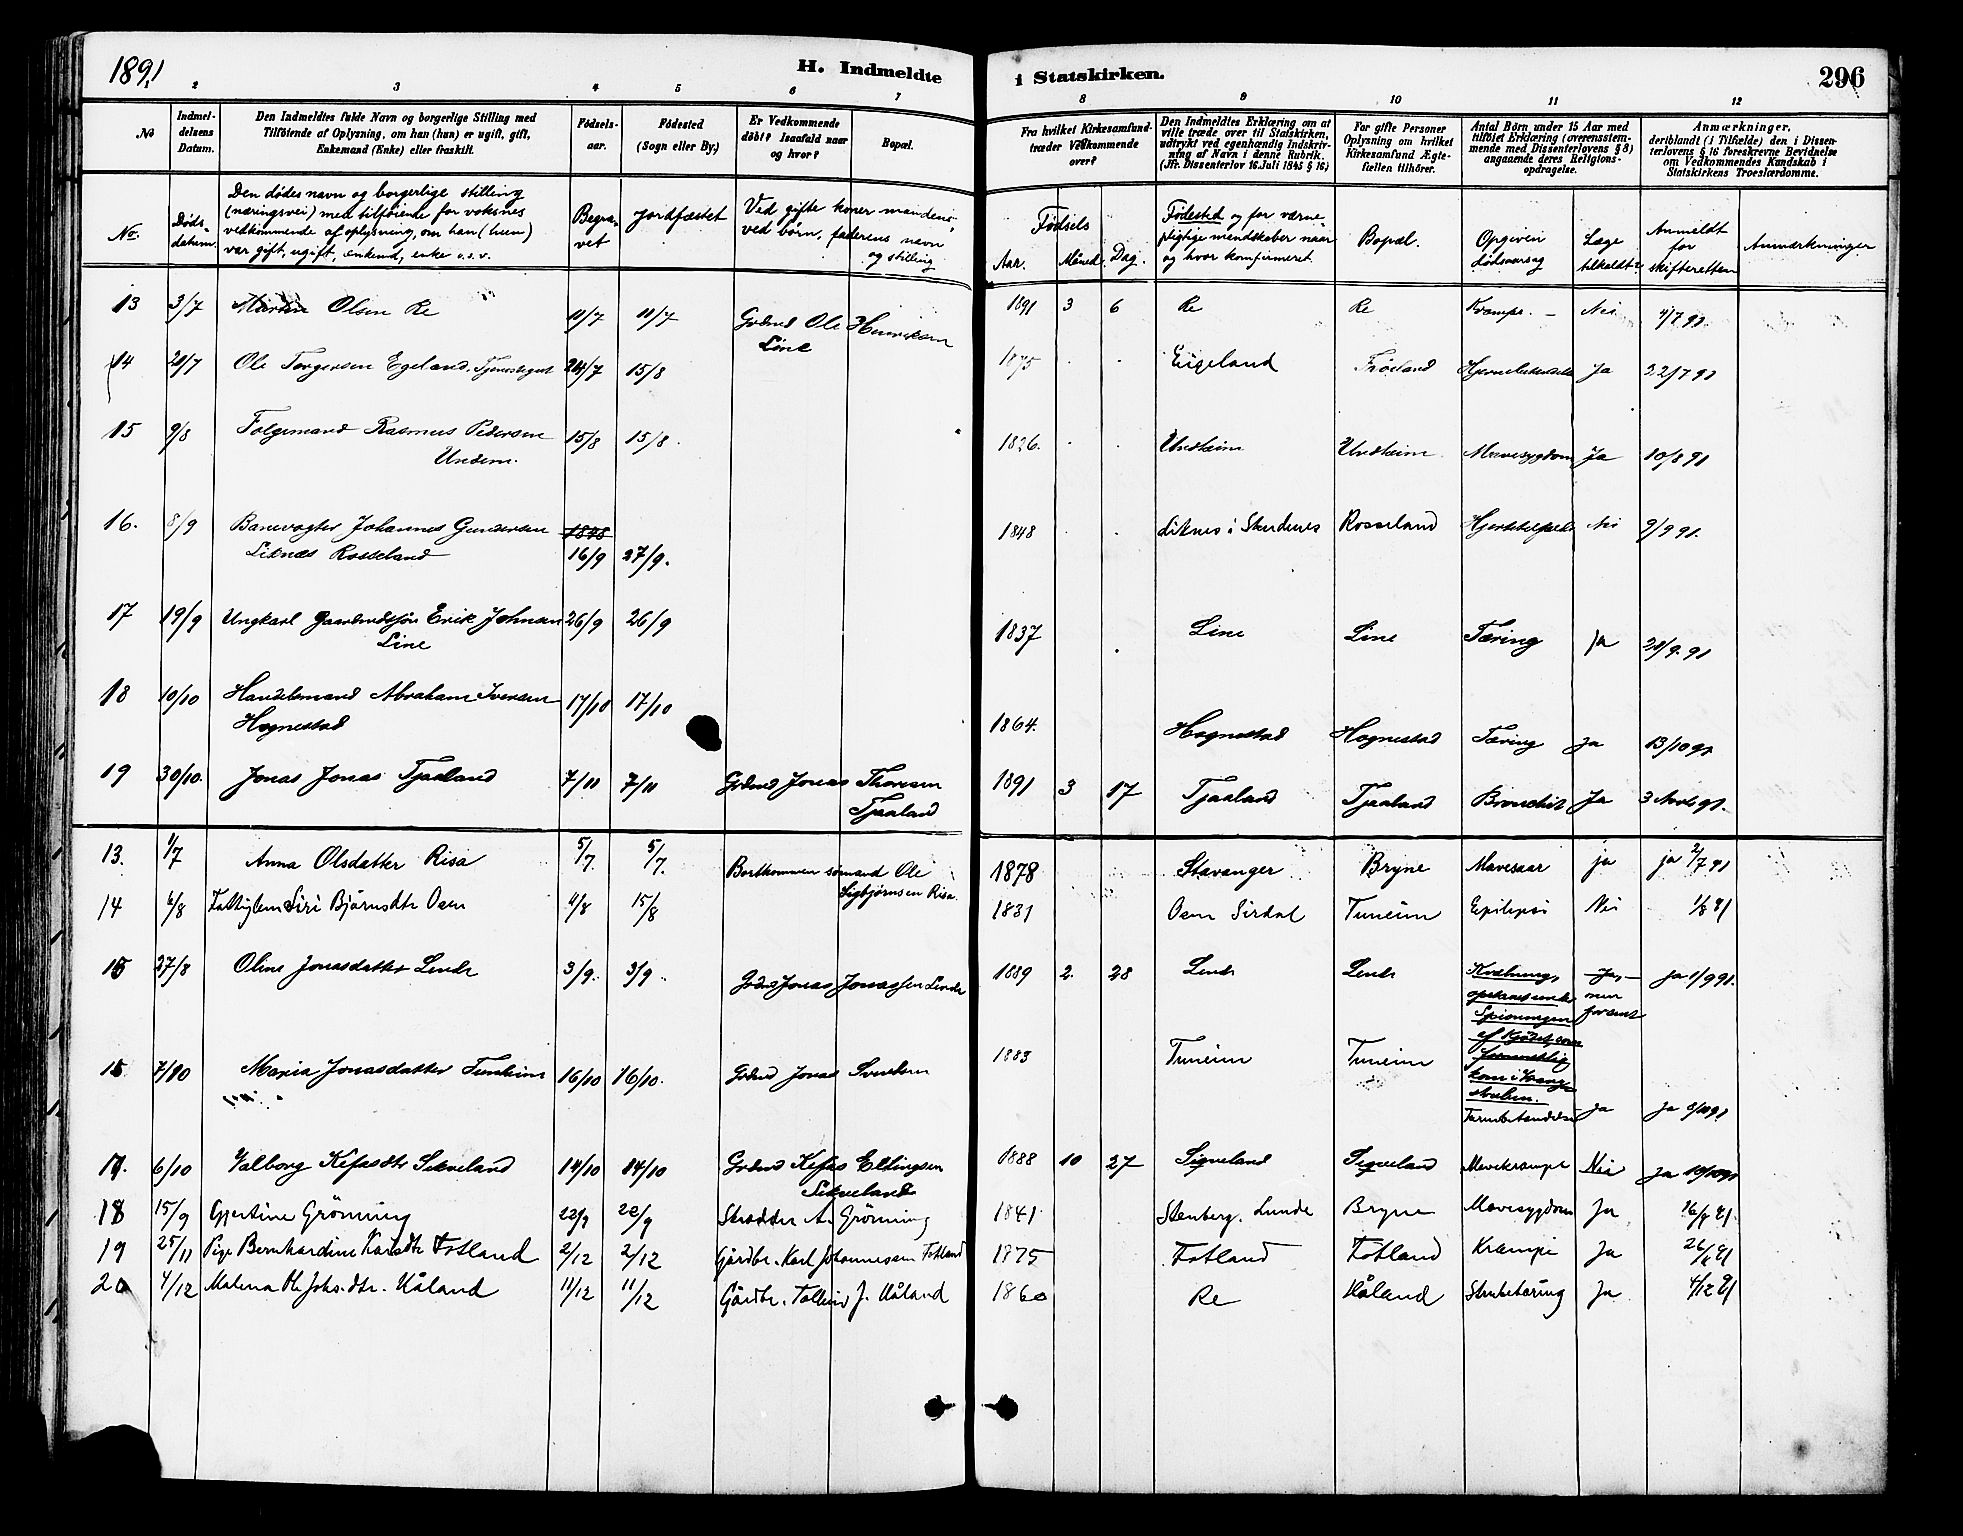 1891
H. Indmeldte i Statskirken.
296
2 3 4 5 6 7 8 9 10 11 12
No
Indmel-
delsens
Datum.
Den Indmeldtes fulde Navn og borgerlige Stilling med
Tilföiende af Oplysning, om han (hun) er ugift, gift,
Enkemand (Enke) eller fraskilt.
Födsels-
aar.
Födested
(Sogn eller By.)
Er Vedkommende
döbt? Isaafald naar
og hvor?
Bopæl.
Fra hvilket Kirkesamfund
træder Vedkommende
over?
Den Indmeldtes Erklæring om at
ville træde over til Statskirken,
udtrykt ved egenhændig Indskriv-
ning af Navn i denne Rubrik.
(Jfr. Dissenterlov 16 Juli 1845 § 16)
For gifte Personer
Oplysning om hvilket
Kirkesamfund Ægte-
fællen tilhörer.
Antal Börn under 15 Aar med
tilföiet Erklæring (overensstem-
mende med Dissenterlovens § 8)
angaaende deres Religions-
opdragelse.
Anmærkninger,
deriblandt (i Tilfælde) den i Dissen-
terlovens § 16 foreskrevne Bevidnelse
om Vedkommendes Kundskab i
Statskirkens Troeslærdomme.
No.
Døds-
datum.
Den dødes navn og borgerlige stilling
(næringsvei) med tilføiende for voksnes
vedkommende af oplysning, om han (hun)
var gift, ugift, enkemd, enke o.s.v.
Begra-
vet
Jordfæstet
Ved gifte koner mandens,
ved børn, faderens navn
og stilling
Fødsels
Aar. Måned. Dag.
Fødested og for værne
pligtige mendskaber naar
og hvor konfirmeret
Bopæl.
Opgiven
dødsaarsag
Læge
tilkaldt?
Anmeldt
for
skifteretten
Anmærkninger
13 3/7 Martin Olsen Re 11/7 11/7 Grdmd Ole Henriksen 1891 3 6 Re Re Krampe. – Nei 4/7 91.
Line
14 20/7 Ole Torgersen Egeland, Tjenestegut 24/7 15/8 1875 Eigeland Frøiland Ja 22/7 91
15 9/8 Folgemand Rasmus Pedersen 15/8 15/8. 1826. Undheim Undheim Mavesygdom Ja 10/8 91
Undem.
16. 8/9 Banevogter Johannes Gundersen 1848 1848 Liknes i Skudenes Rosseland Nei 9/9 91.
Liknæs Rosseland 16/9 27/9.
17 19/9 Ungkarl Gaardmdssøn Erik Johnsen 26/9 26/9 1837 Line Line Tæring ja 21/9. 91
Line
18 10/10 Handelsmand Abraham Iversen 17/10 17/10 1864. Hognestad Hognestad Tæring Ja 13/10 91
Hognestad
19 30/10. Jonas Jonas Tjaaland 7/11 7/11 Grdmd Jonas Thoresen 1891 3 17 Tjaaland Tjaaland Bronchit Ja 3 Novb 91.
Tjaaland
13. 1/7 Anna Olsdatter Risa 5/7. 5/7. Bortkommen sømand Ole 1878 Stavanger Bryne Mavesaar ja ja 2/7 91
Sigbjørnsen Risa.
14 Siri Bjørnsdtr Osen 4/8 15/8 1831 Osen Sirdal Tuneim Epilepsi Nei 1/8 91
15 27/8 Oline Jonasdatter Lende 3/9. 3/9. Grdmd Jonas Jonassen Lende 1889 2. 28 Lende Lende Kvælning, Ja, ja 1/9 91.
men
af Kjødet, som
kom i Vrang-
struben.
7/10 Maria Jonasdatter Tunheim 16/10 16/10. Grdmd Jonas Svendsen 1883 Tuneim Tuneim Tarmbetændelse ja ja
17. 6/10 Valborg Kefasdtr Sikveland 14/10 14/10 Grdmd Kefas Ellingsen 1888 10 27 Sigveland Sigveland Mavekrampe Nei Ja 10/10 91
Sikveland
18 15/9 Gjertine Grönning 22/9 22/9 Skrædder A. Grönning 1841 Stenberg, Lunde Bryne Mavesygdom Ja 16/9 91.
19 25/11 Pige Bernhardine Karlsdtr Fotland 2/12 2/12 Gårdbr. Karl Johannessen Fotland 1875 Fotland Fotland Krampe Ja
20 4/12 Malena Johs.dtr. Håland 11/12 11/12 Gårdbr. J. Håland 1860 Re Håland Strubetæring Ja 4/12 91